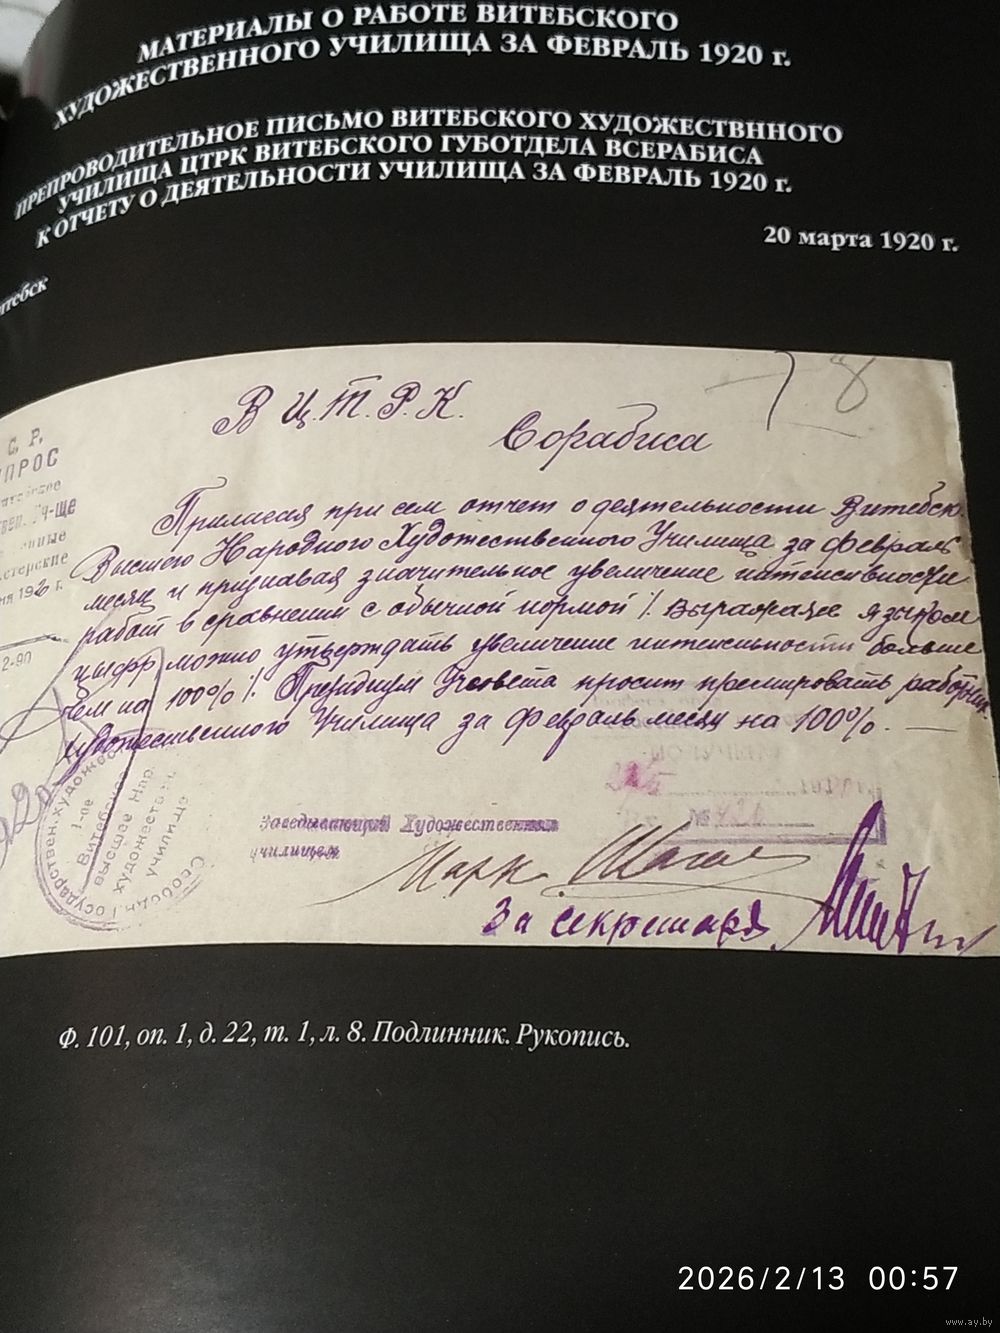 МАТЕРИАЛЫ О РАБОТЕ ВИТЕБСКОГО
ХУДОЖЕСТВЕННОГО УЧИЛИЩА ЗА ФЕВРАЛЬ 1920 г.
ПРЕПРОВОДИТЕЛЬНОЕ ПИСЬМО ВИТЕБСКОГО ХУДОЖЕСТВННОГО
УЧИЛИЩА ЦТРК ВИТЕБСКОГО ГУБОТДЕЛА ВСЕРАБИСА
К ОТЧЕТУ О ДЕЯТЕЛЬНОСТИ УЧИЛИЩА ЗА ФЕВРАЛЬ 1920 г.
20 марта 1920 г.
итебск
8
В Ц.Т.Р.К.
Сорабиса
С. Р.
ПРОС
Уч-ще
2-90
Прилагая при сем отчет о деятельности Витебск.
Высшего Народного Художественного Училища за февраль
месяц и признавая значительное увеличение интенсивности
работ в сравнении с обычной нормой /. Выражаясь языком
цыфр можно утверждать увеличение интенсивности больше
чем на 100% /. Президиум Уч. совета просит премировать работник.
Художественного Училища за февраль месяц на 100%. —
1-ое
Витебское
высшее Нар.
художествен.
училище
Заведывающий Художественным
училищем
Марк Шагал
За секретаря
Ф. 101, оп. 1, д. 22, т. 1, л. 8. Подлинник. Рукопись.
2026/2/13 00:57
www.ay.by